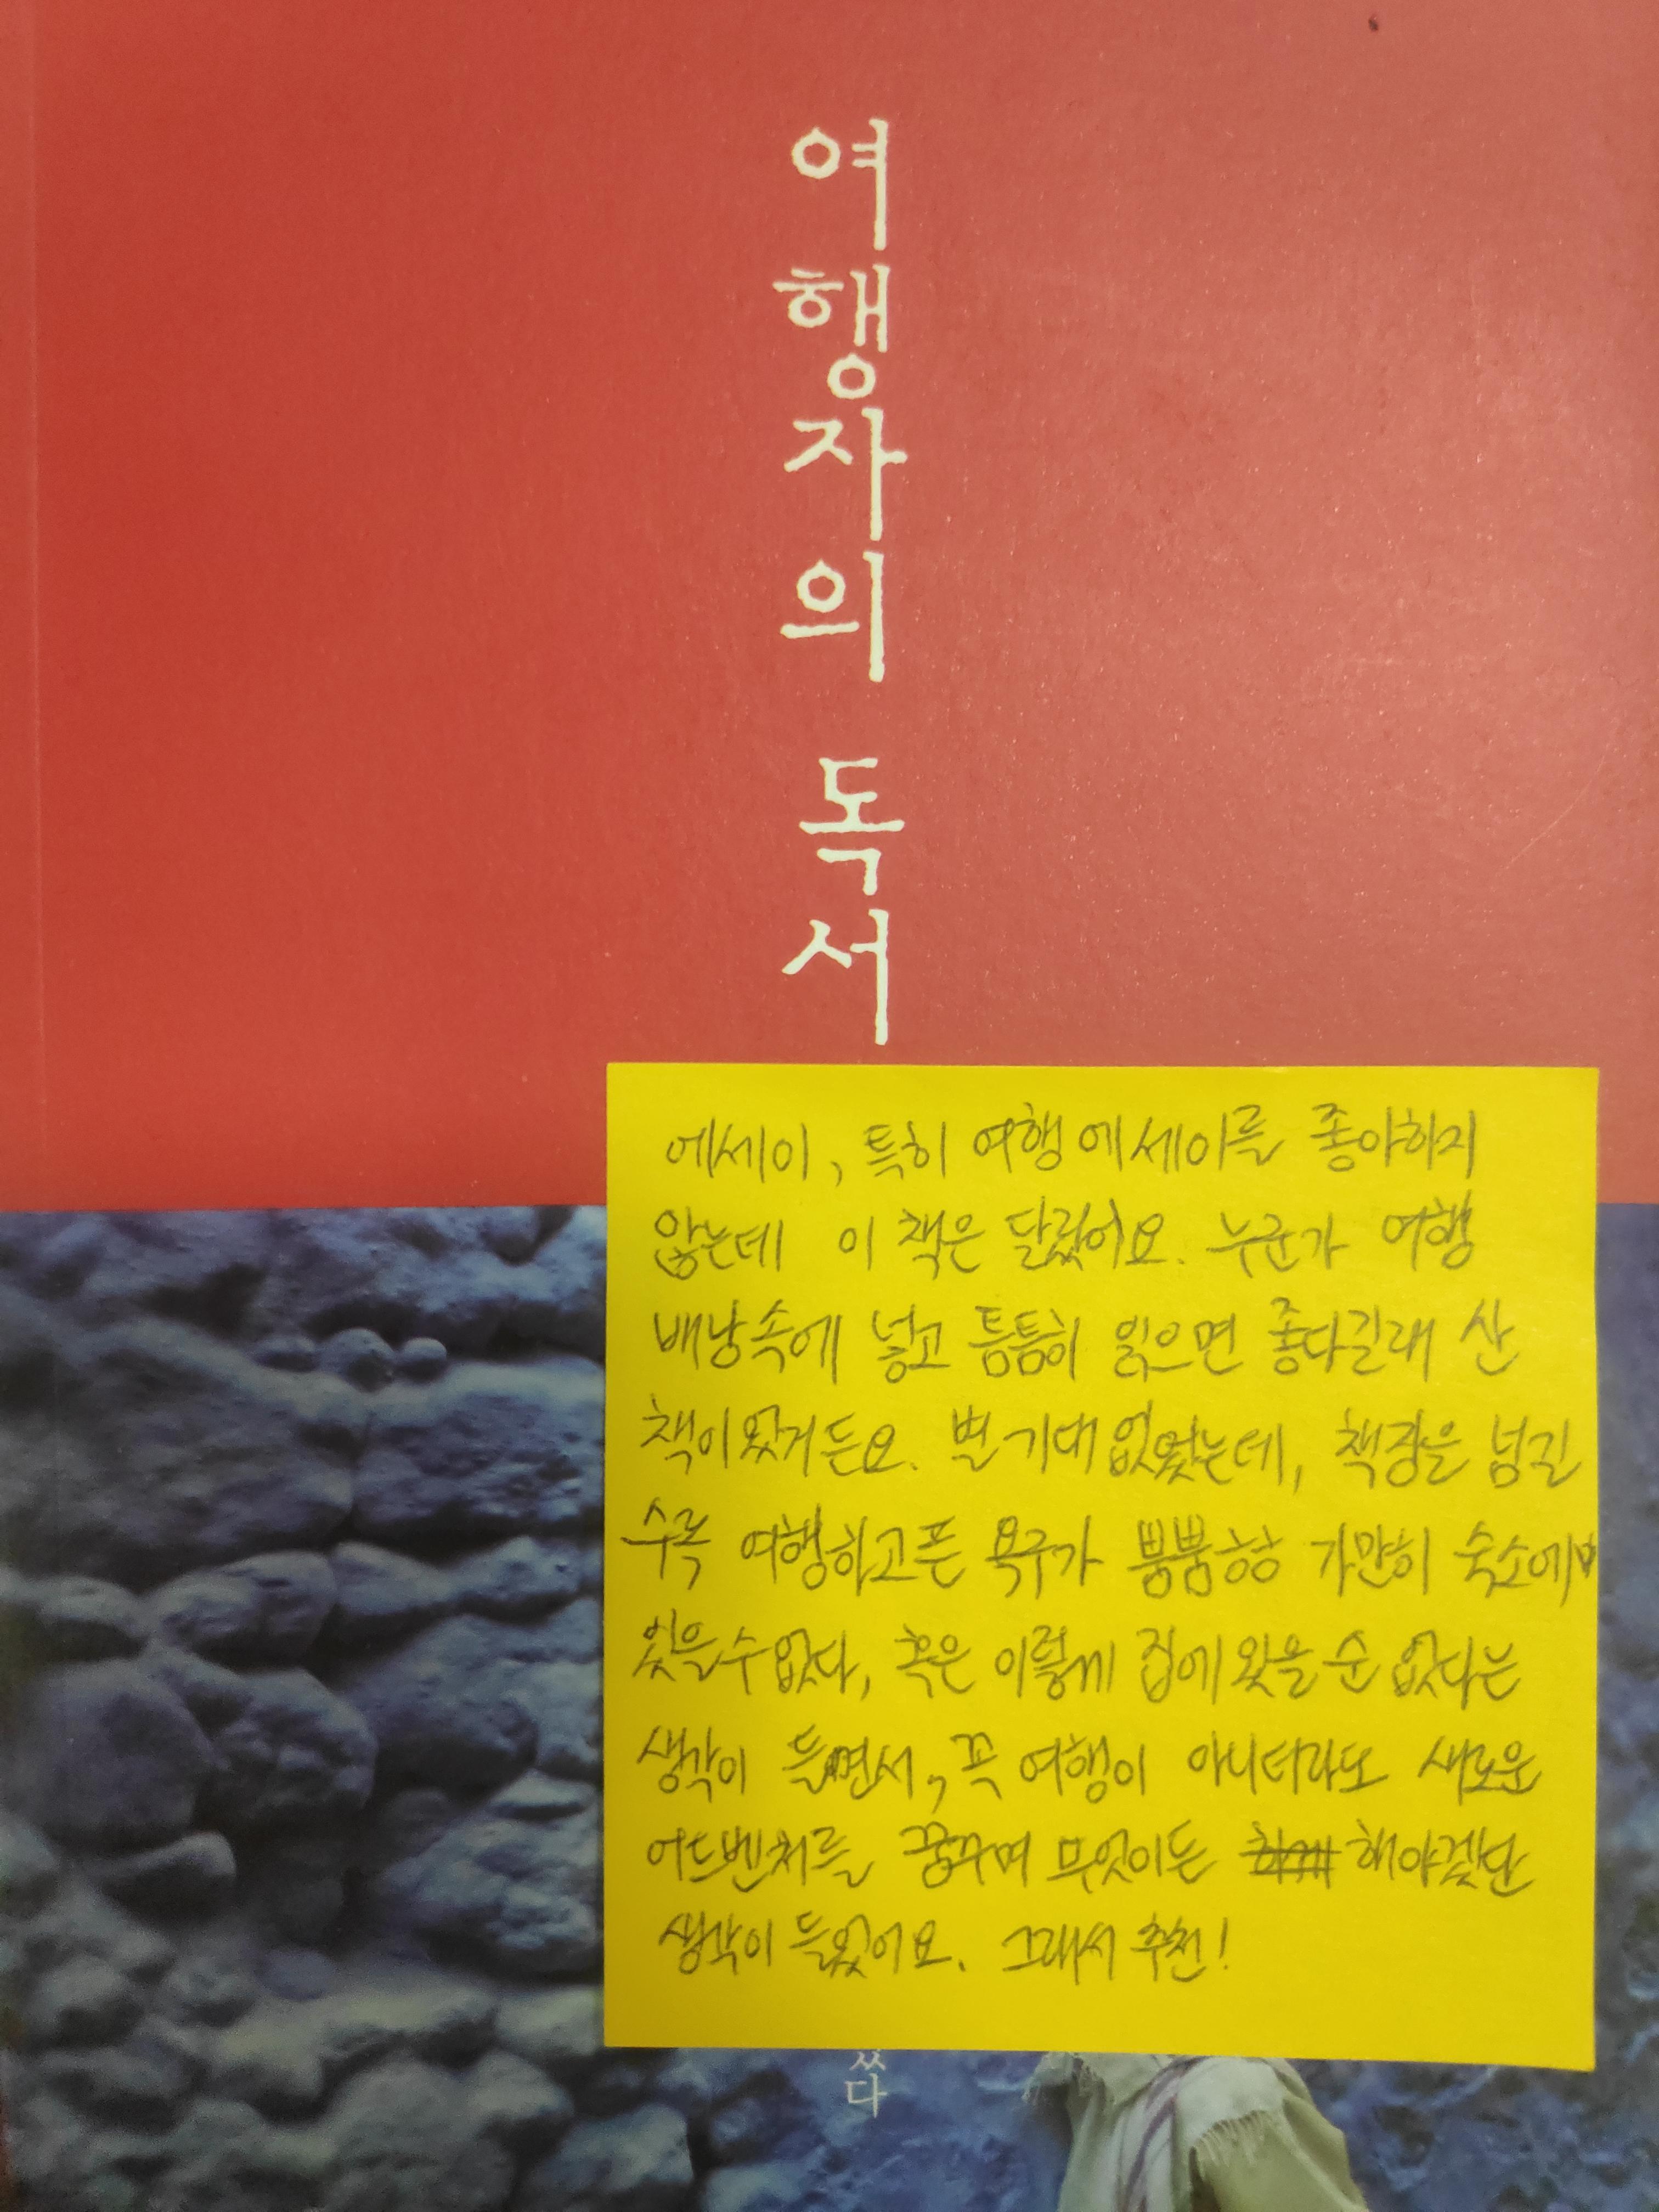 여행자의 독서
에세이, 특히 여행 에세이를 좋아하지
않는데 이 책은 달랐어요. 누군가 여행
배낭속에 넣고 틈틈히 읽으면 좋다길래 산
책이었거든요. 별 기대 없었는데, 책장을 넘길
수록 여행하고픈 욕구가 뿜뿜ㅎㅎ 가만히 숙소에만
있을 수 없다, 혹은 이렇게 집에 있을 순 없다는
생각이 들면서, 꼭 여행이 아니더라도 새로운
어드벤처를 꿈꾸며 무엇이든 해야겠단
생각이 들었어요. 그래서 추천!
쓰다